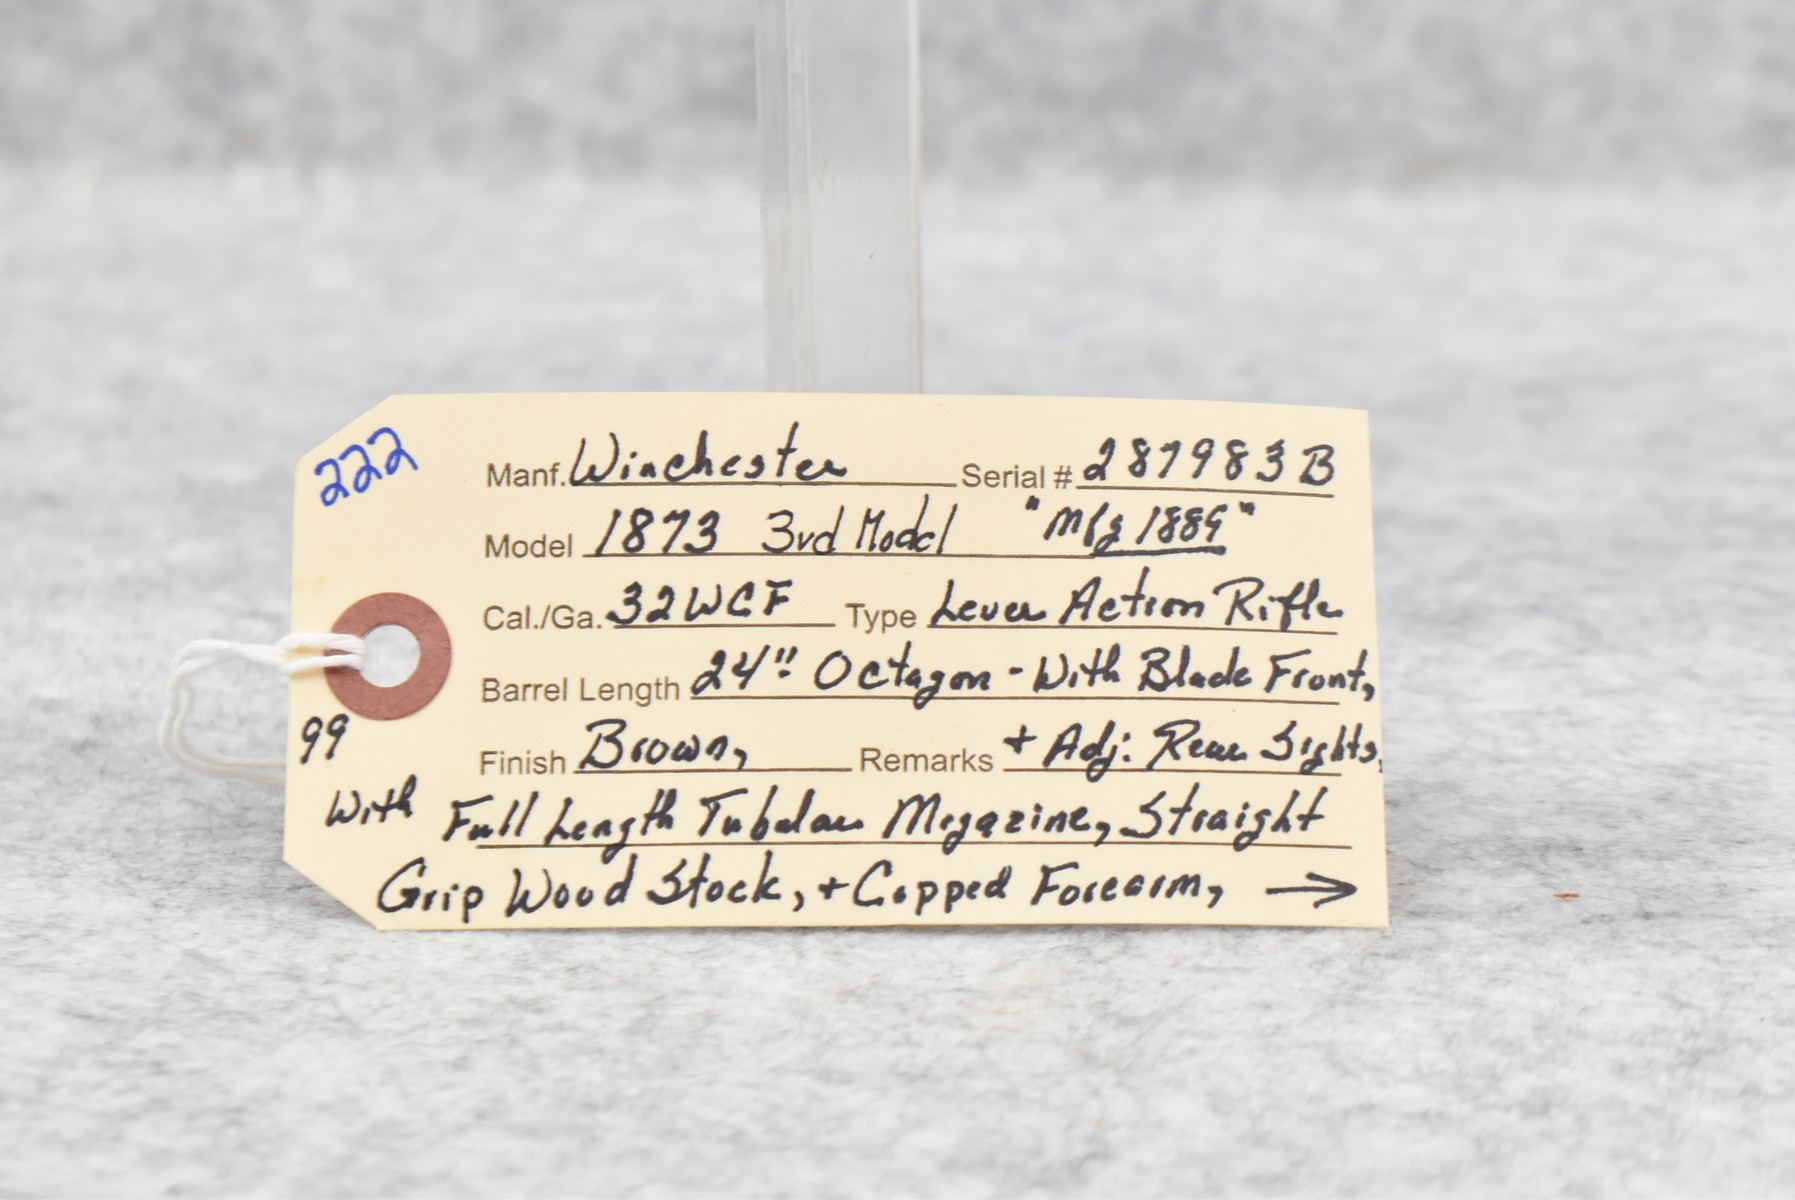 222
Manf. Winchester Serial # 287983B
Model 1873 3rd Model "Mfg 1889"
Cal./Ga. 32WCF Type Lever Action Rifle
Barrel Length 24" Octagon - With Blade Front,
99
Finish Brown, Remarks + Adj. Rear Sights,
With Full Length Tubular Magazine, Straight
Grip Wood Stock, + Capped Forearm, →